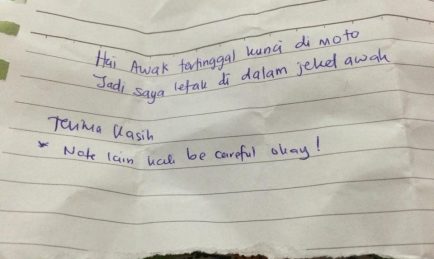 Hai Awak tertinggal kunci di moto
Jadi saya letak di dalam jeket awak
Terima Kasih
* Note lain kali be careful okay!